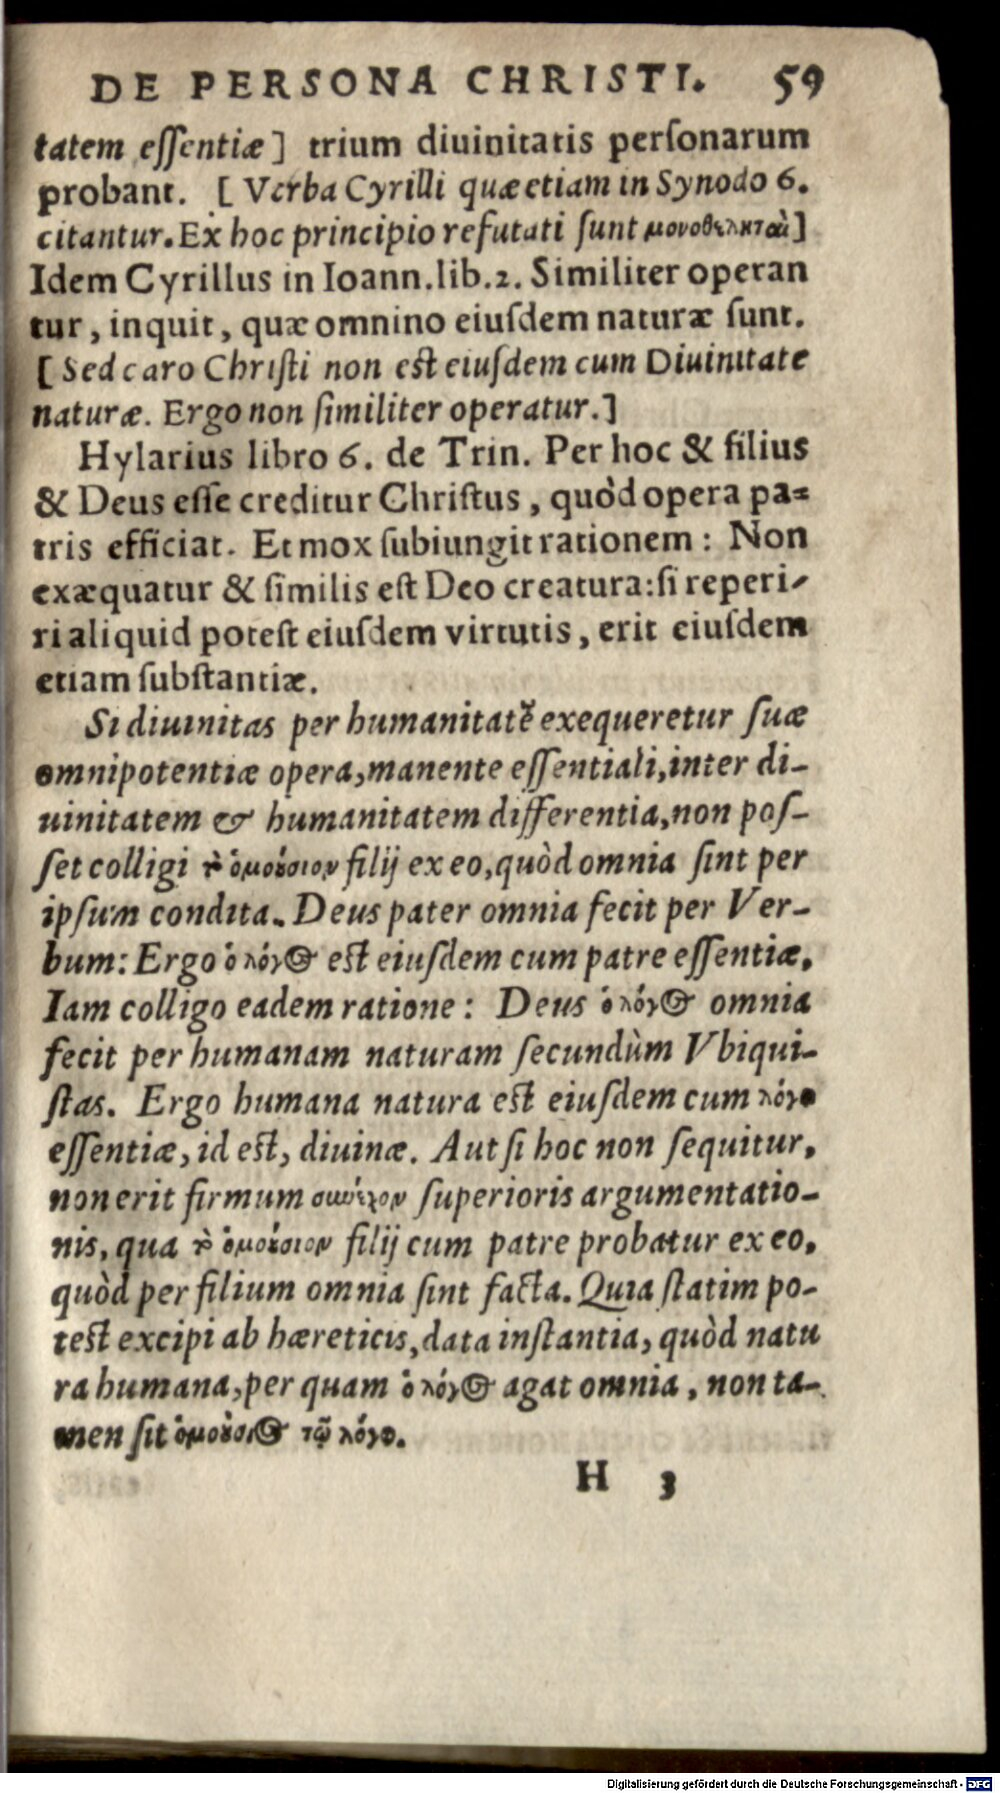 DE PERSONA CHRISTI. 59
tatem essentiæ] trium diuinitatis personarum
probant. [Verba Cyrilli quæ etiam in Synodo 6.
citantur. Ex hoc principio refutati sunt μονοθεληταὶ]
Idem Cyrillus in Ioann. lib. 2. Similiter operan
tur, inquit, quæ omnino eiusdem naturæ sunt.
[Sed caro Christi non est eiusdem cum Diuinitate
naturæ. Ergo non similiter operatur.]
Hylarius libro 6. de Trin. Per hoc & filius
& Deus esse creditur Christus, quòd opera pa=
tris efficiat. Et mox subiungit rationem: Non
exæquatur & similis est Deo creatura: si reperi-
ri aliquid potest eiusdem virtutis, erit eiusdem
etiam substantiæ.
Si diuinitas per humanitatẽ exequeretur suæ
omnipotentiæ opera, manente essentiali, inter di-
uinitatem & humanitatem differentia, non pos-
set colligi τὸ ὁμοούσιον filij ex eo, quòd omnia sint per
ipsum condita. Deus pater omnia fecit per Ver-
bum: Ergo ὁ λόγος est eiusdem cum patre essentiæ.
Iam colligo eadem ratione: Deus ὁ λόγος omnia
fecit per humanam naturam secundùm Vbiqui-
stas. Ergo humana natura est eiusdem cum λόγῳ
essentiæ, id est, diuinæ. Aut si hoc non sequitur,
non erit firmum superioris argumentatio-
nis, qua τὸ ὁμοούσιον filij cum patre probatur ex eo,
quòd per filium omnia sint facta. Quia statim po-
test excipi ab hæreticis, data instantia, quòd natu
ra humana, per quam ὁ λόγος agat omnia, non ta-
men sit ὁμοούσιος τῷ λόγῳ.
H 3
Digitalisierung gefördert durch die Deutsche Forschungsgemeinschaft - DFG